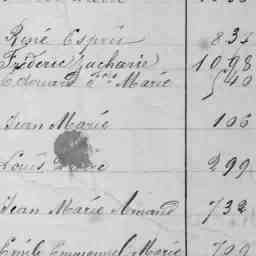 René Esprit 835
Frédéric Zacharie 1098
Edouard Marie 540
Jean Marie 106
Louis 299
Jean Marie Armand 732
Emile Emmanuel Marie 709